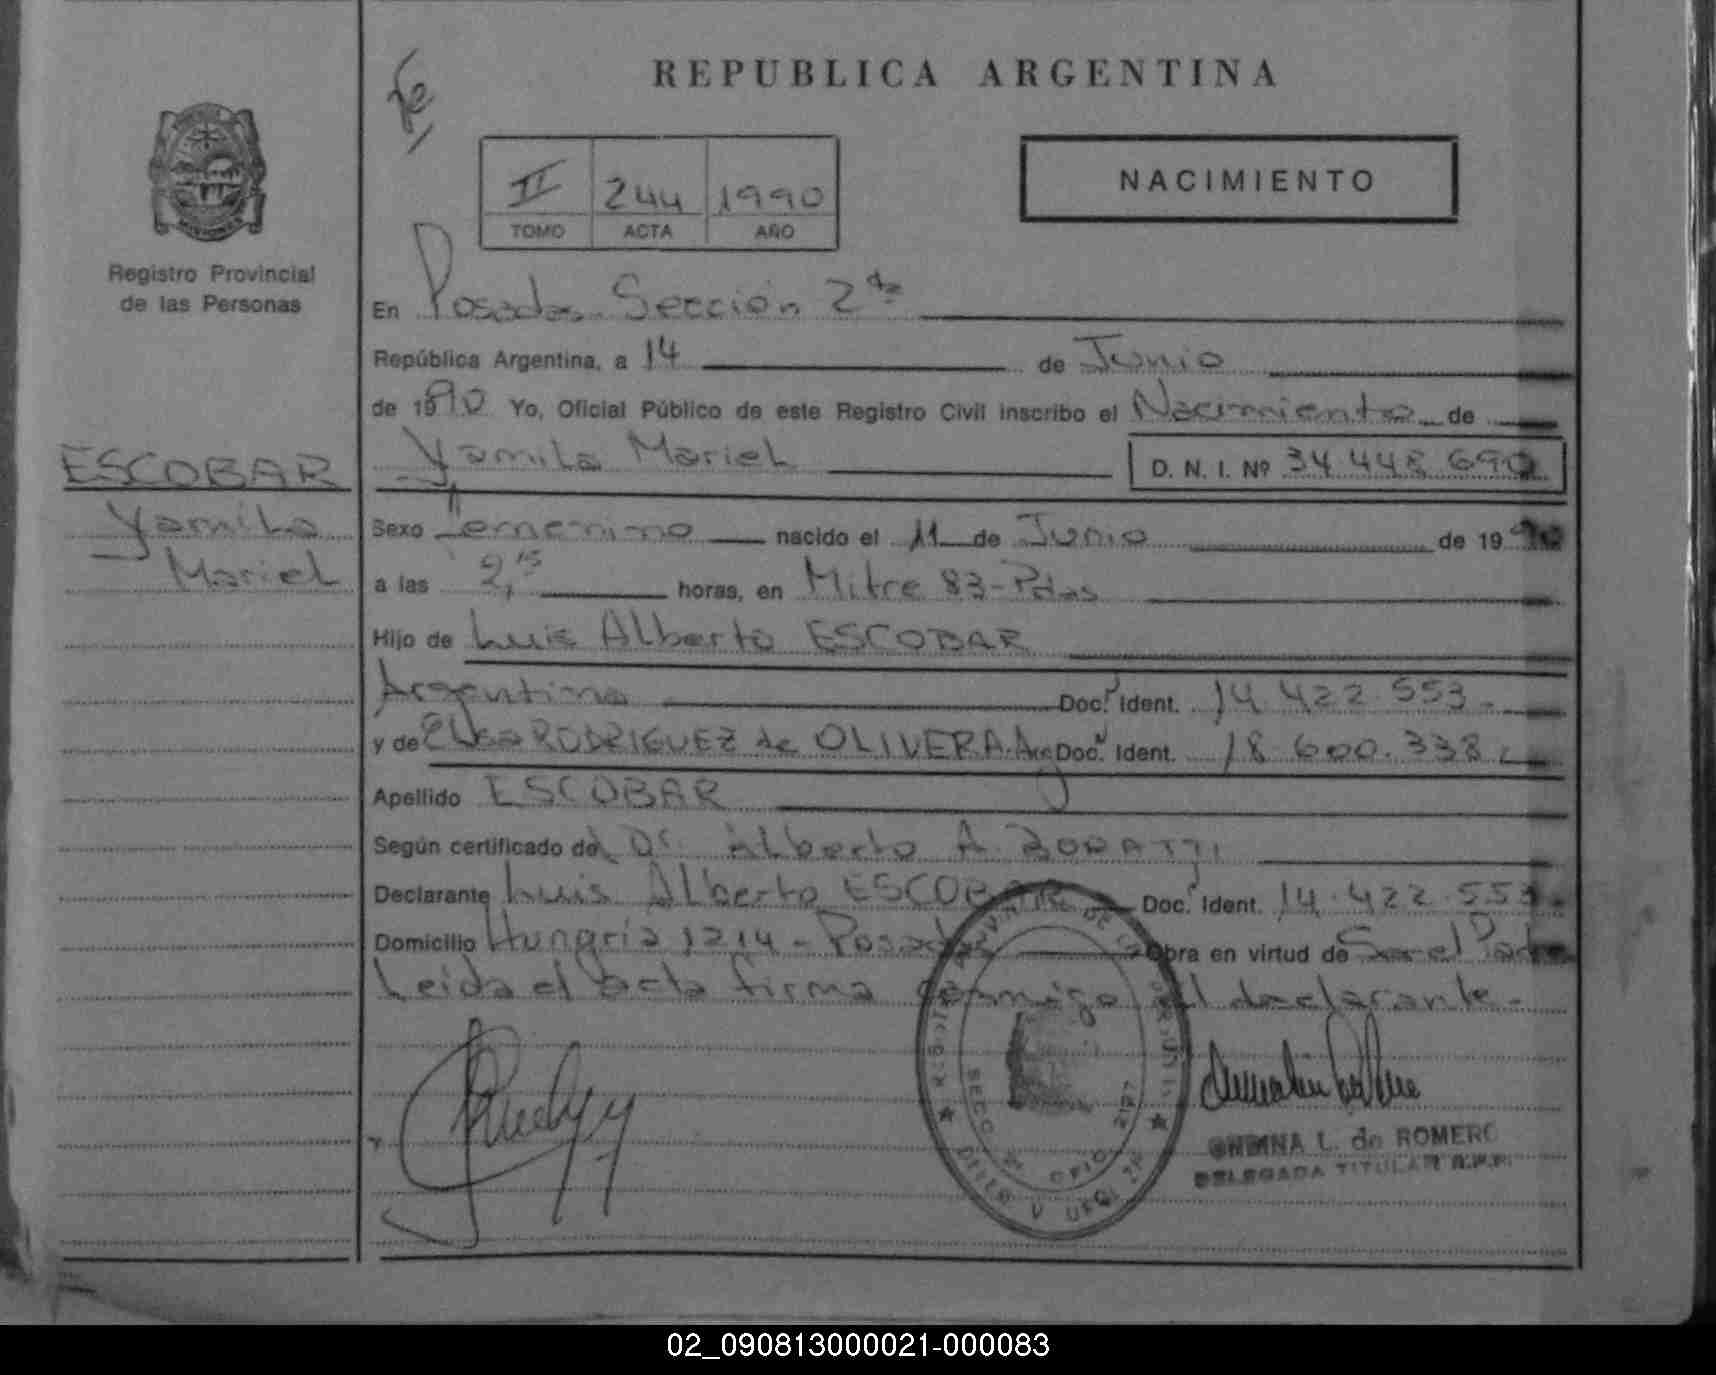 REPUBLICA ARGENTINA
NACIMIENTO
II 244 1990
TOMO ACTA AÑO
Registro Provincial
de las Personas
En Posadas Sección 2da
República Argentina, a 14 de Junio
de 1990 Yo, Oficial Público de este Registro Civil inscribo el Nacimiento de
ESCOBAR
Yamila
Mariel
Yamila Mariel D. N. I. Nº 34.448.690
Sexo Femenino nacido el 11 de Junio de 1990
a las 2,15 horas, en Mitre 83-Pdas
Hijo de Luis Alberto ESCOBAR
Argentino Doc. Ident. 14.422.553.-
y de Elsa RODRIGUEZ de OLIVERA. Arg Doc. Ident. 18.600.338
Apellido ESCOBAR
Según certificado del Dr. Alberto A.
Declarante Luis Alberto ESCOBAR Doc. Ident. 14.422.553.-
Domicilio Hungria 1214 - Posadas Obra en virtud de Ser el Padre
Leida el acta firma conmigo el declarante.-
L. de ROMERO
DELEGADA TITULAR R.P.P.
02_090813000021-000083